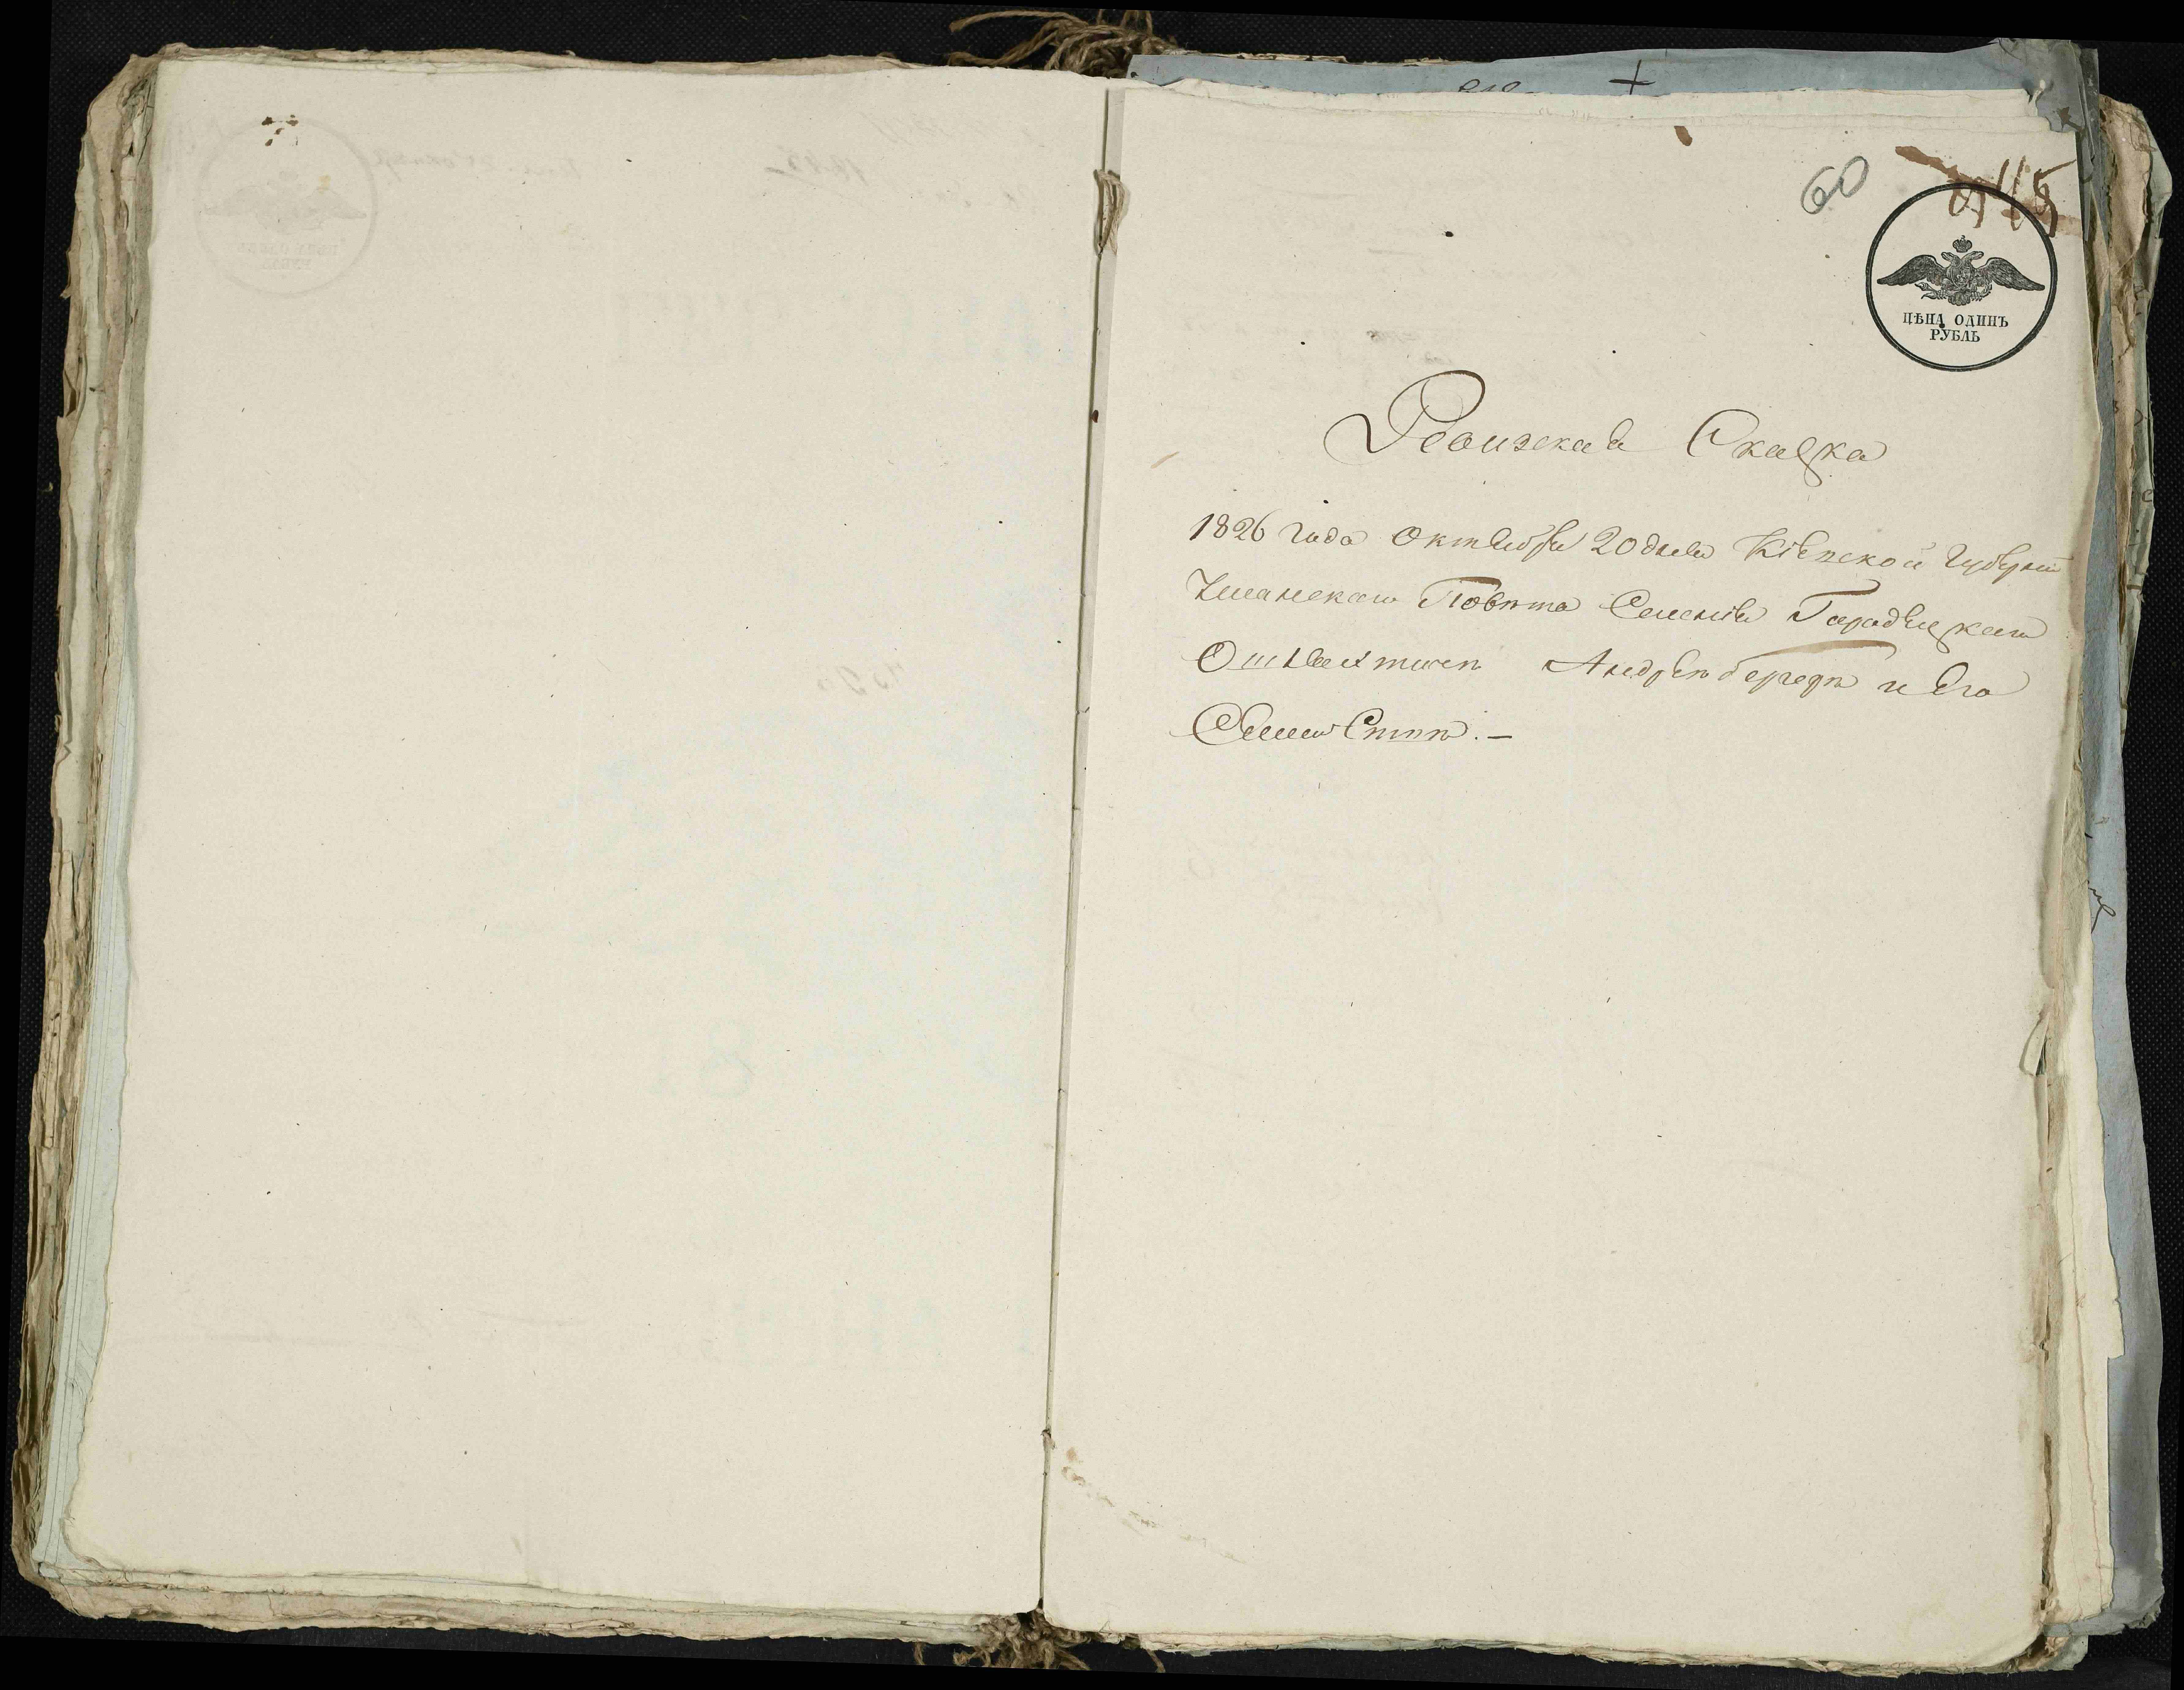 60
ЦѢНА ОДИНЪ
РУБЛЬ
Ревизская Сказка
1826 года Октября 20 дня Кіевской Губерніи
Уманскаго Повѣта Селенія Гарадецкаго
Андрей и Его
Семействѣ. —